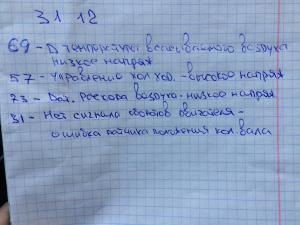 31 12
69 - D температуры всасываемого воздуха
низкое напряж
57 - Управление хол ход. - высокое напряж
73 - Dат. расхода воздуха - низкое напряж
31 - Нет сигнала оборотов двигателя -
ошибка датчика положения кол. вала